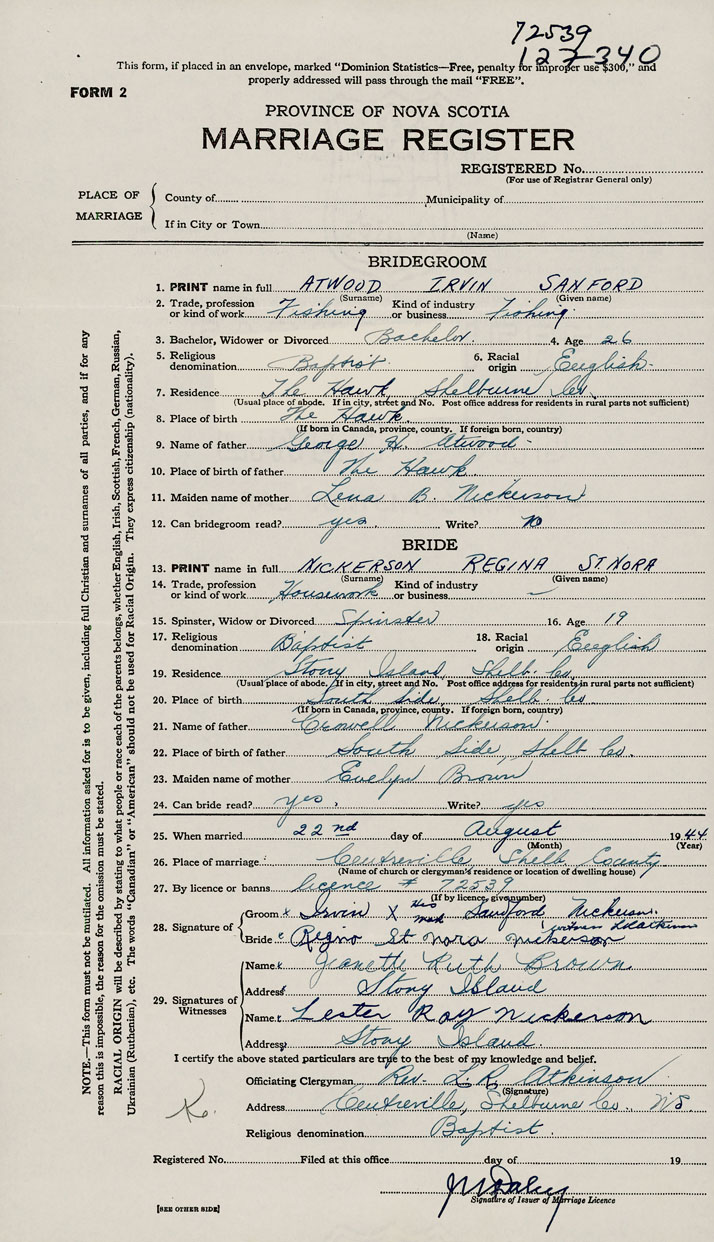 72539
127-340
This form, if placed in an envelope, marked "Dominion Statistics—Free, penalty for improper use $300," and
properly addressed will pass through the mail "FREE".
FORM 2
PROVINCE OF NOVA SCOTIA
MARRIAGE REGISTER
REGISTERED No.
(For use of Registrar General only)
PLACE OF MARRIAGE
County of Municipality of
If in City or Town
(Name)
BRIDEGROOM
1. PRINT name in full ATWOOD IRVIN SANFORD
(Surname) (Given name)
2. Trade, profession or kind of work Fishing Kind of industry or business Fishing
3. Bachelor, Widower or Divorced Bachelor. 4. Age 26
5. Religious denomination Baptist 6. Racial origin English
7. Residence The Hawk Shelburne Co
(Usual place of abode. If in city, street and No. Post office address for residents in rural parts not sufficient)
8. Place of birth The Hawk.
(If born in Canada, province, county. If foreign born, country)
9. Name of father George H. Atwood
10. Place of birth of father The Hawk
11. Maiden name of mother Lena B. Nickerson
12. Can bridegroom read? yes. Write? no
BRIDE
13. PRINT name in full NICKERSON REGINA ST. NORA
(Surname) (Given name)
14. Trade, profession or kind of work Housework Kind of industry or business —
15. Spinster, Widow or Divorced Spinster 16. Age 19
17. Religious denomination Baptist 18. Racial origin English
19. Residence Stony Island, Shelb. Co.
(Usual place of abode. If in city, street and No. Post office address for residents in rural parts not sufficient)
20. Place of birth South Side, Shelb Co.
(If born in Canada, province, county. If foreign born, country)
21. Name of father Crowell Nickerson.
22. Place of birth of father South Side, Shelb Co.
23. Maiden name of mother Evelyn Brown
24. Can bride read? yes, Write? yes
25. When married 22nd day of August 1944
(Month) (Year)
26. Place of marriage Centreville, Shelb County
(Name of church or clergyman's residence or location of dwelling house)
27. By licence or banns licence # 72539
(If by licence, give number)
28. Signature of
Groom x Irvin X his mark Sandford Nickerson.
witness
Bride Regina St Nora Nickerson
29. Signatures of Witnesses
Name Jeanette Ruth Brown
Address Stony Island
Name Lester Ray Nickerson
Address Stony Island
I certify the above stated particulars are true to the best of my knowledge and belief.
Officiating Clergyman Rev. L. R. Atkinson
(Signature)
Address Centreville, Shelburne Co., N.S.
Religious denomination Baptist.
Registered No. Filed at this office day of 19
Signature of Issuer of Marriage Licence
[SEE OTHER SIDE]
NOTE.—This form must not be mutilated. All information asked for is to be given, including full Christian and surnames of all parties, and if for any
reason this is impossible, the reason for the omission must be stated.
RACIAL ORIGIN will be described by stating to what people or race each of the parents belongs, whether English, Irish, Scottish, French, German, Russian,
Ukrainian (Ruthenian), etc. The words "Canadian" or "American" should not be used for Racial Origin. They express citizenship (nationality).